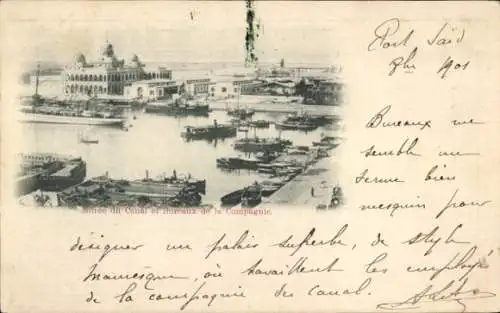 Port Saïd
8bre 1901
Bureaux me
semble un
terme bien
mesquin pour
Entrée du Canal et Bureaux de la Compagnie.
désigner un palais superbe, de style
Mauresque, où travaillent les employés
de la compagnie des Canal.